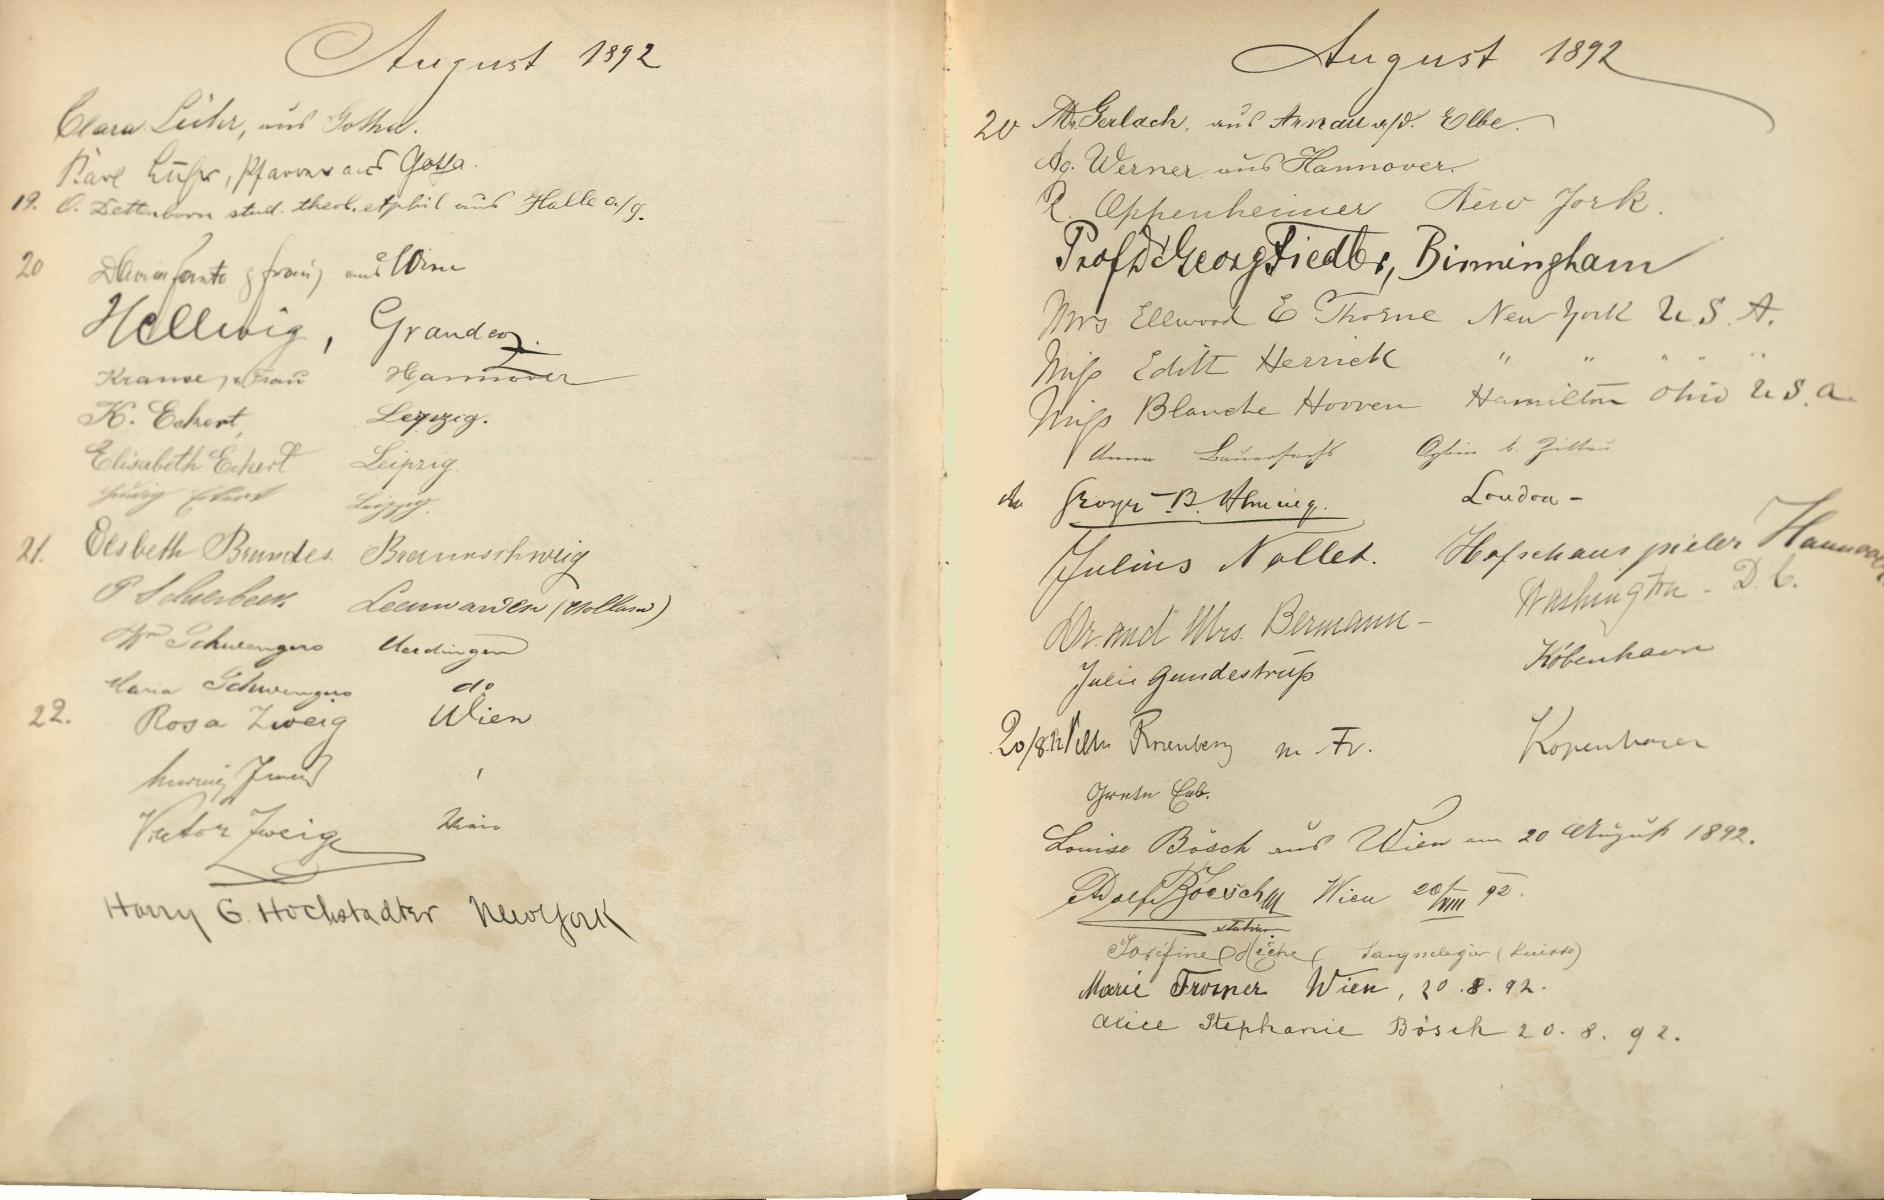 August 1892
Clara Lühr, aus Gotha.
Karl Lühr, Pfarrer aus Gotha.
19. O. Dettenborn stud. theol. et phil aus Halle a/S.
20 aus Wien
Hellwig, Graudenz.
Krause, u. Frau Hannover
K. Eckert, Leipzig.
Elisabeth Eckert Leipzig.
Eckert Leipzig.
21. Elsbeth Brandes Braunschweig
P Leeuwarden (Holland)
Wm Schwengers Uerdingen
Maria Schwengers do
22. Rosa Zweig Wien
Victor Zweig Wien
Harry G. Hochstadter New York
August 1892
20 Gerlach, aus Arnau a/d. Elbe.
Ag. Werner aus Hannover.
R. Oppenheimer New York.
Prof Dr Georg Fiedler, Birmingham
Mrs Ellwood E Thorne New York U.S.A.
Miss Edith Herrick " " " " "
Miss Blanche Hooven Hamilton Ohio U.S.A.
Anna Oybin b. Zittau
George B. London -
Julius Nollet. Hofschauspieler Hannover
Dr. and Mrs. Bermann - Washington - D.C.
Julie Gundestrup København
20/8. Rosenberg m. Fr. Kopenhagen
Louise Bösch aus Wien am 20 August 1892.
Adolf Boesch Wien 20/VIII 92.
Joséfine
Marie Wien, 20.8.92.
Alice Stephanie Bösch 20.8.92.